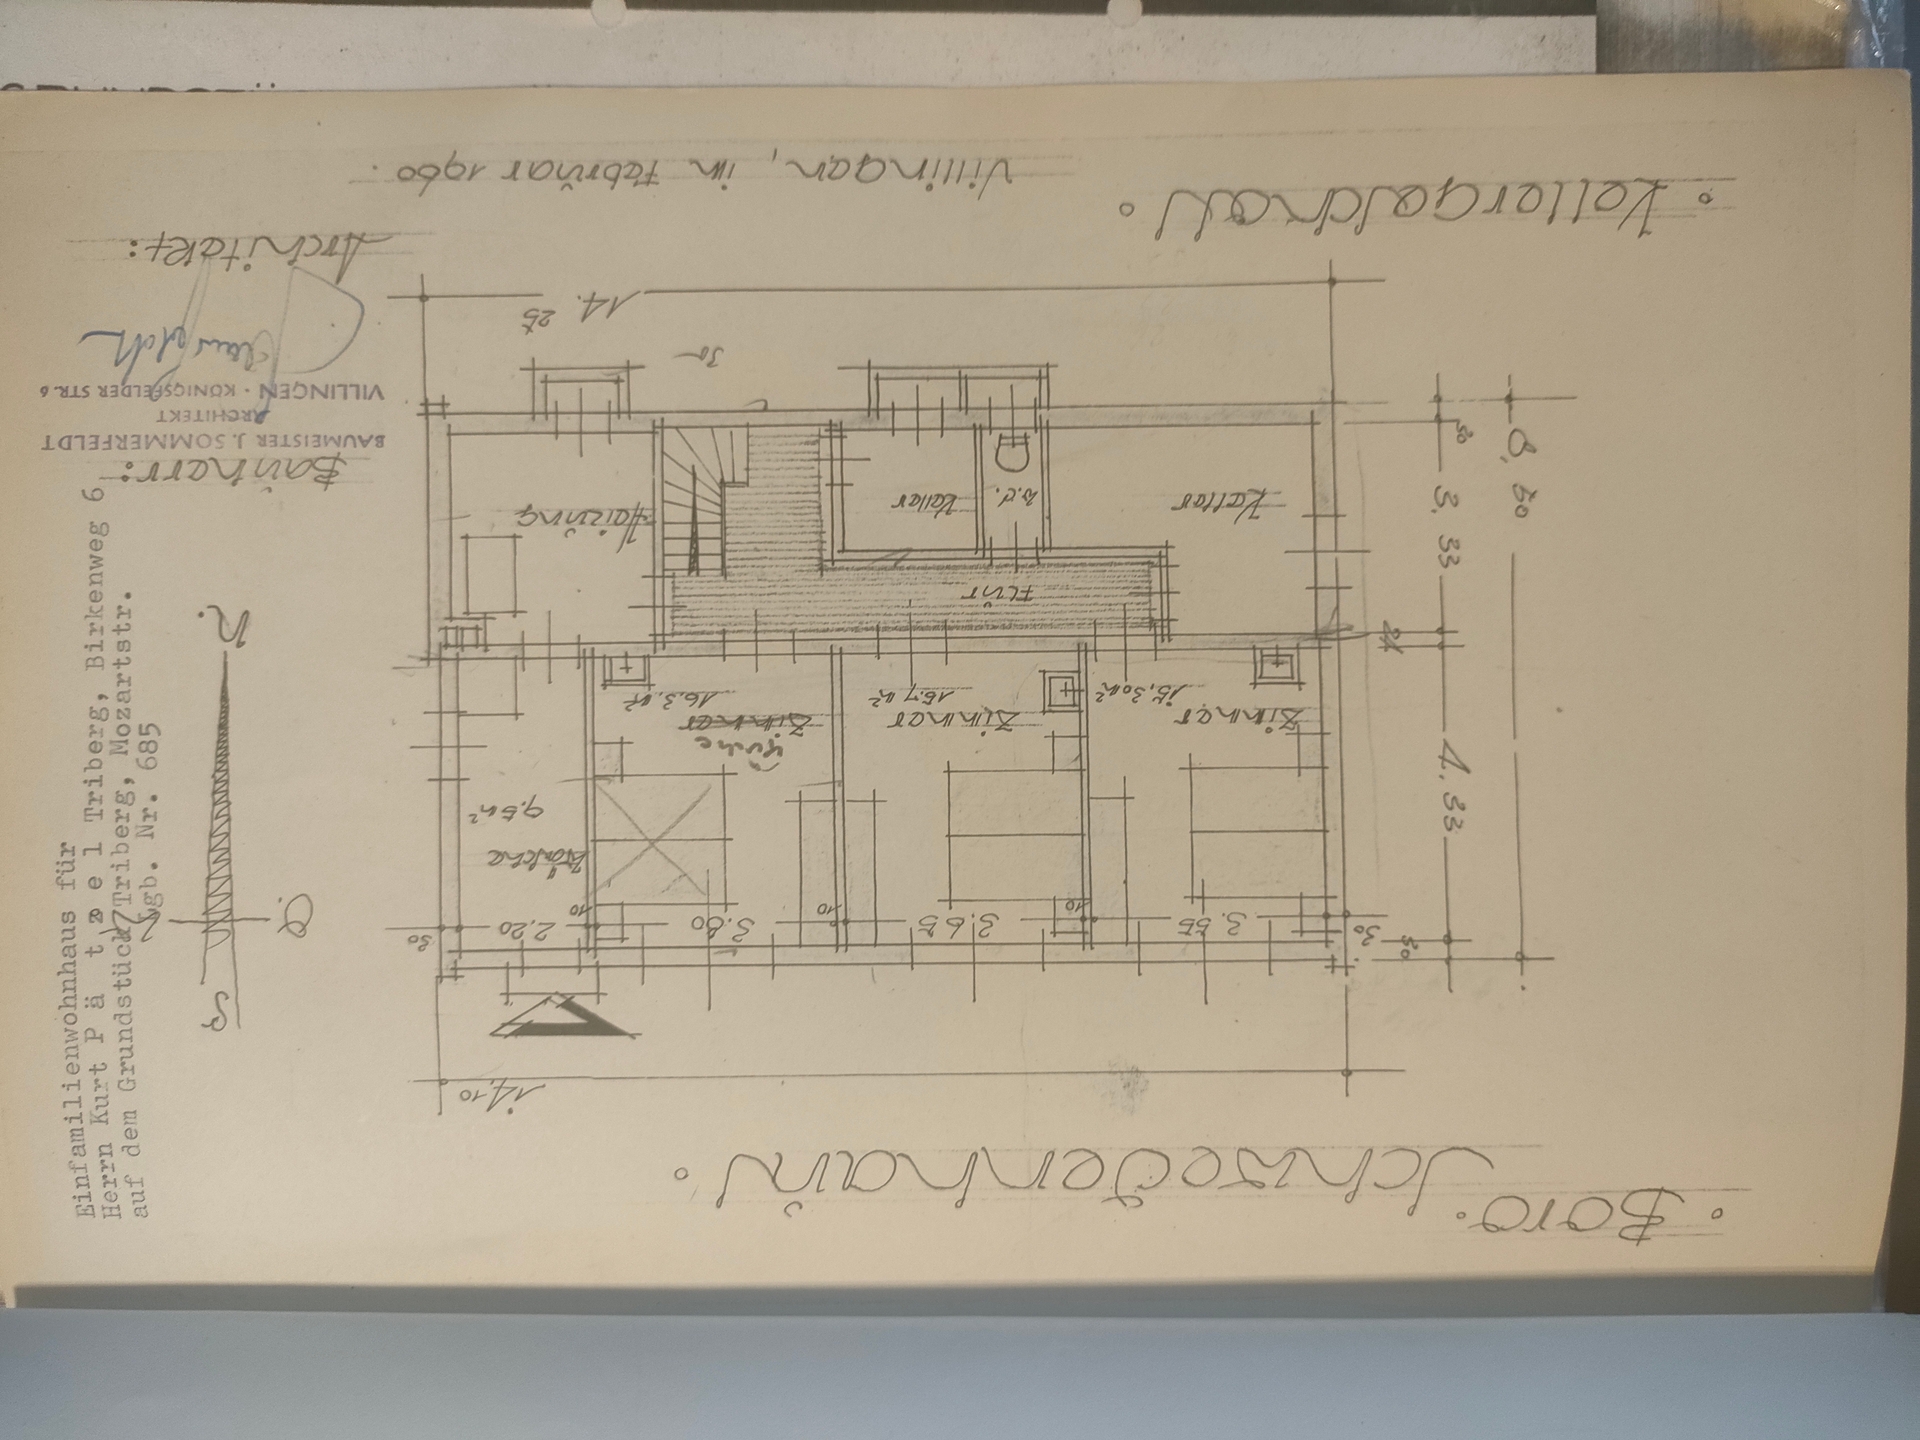 Baro. Schwedenhaus.
14,10
30 2,20 10 3.60 10 3.65 10 3.55 30
Wäsche
9.5 m²
Küche
Zimmer
16.3 m²
Zimmer
15.7 m²
Zimmer
15,30 m²
Flur
Heizung
Keller
W.C.
Keller
30
4.33
24
3.33
30
8.50
30
14.25
Kellergeschoß.
Villingen, im Februar 1960.
Architekt:
BAUMEISTER J. SOMMERFELDT
ARCHITEKT
VILLINGEN · KÖNIGSFELDER STR. 6
Bauherr:
N.
S
O.
W
Einfamilienwohnhaus für
Herrn Kurt P ä t z e l Triberg, Birkenweg 6
auf dem Grundstück Triberg, Mozartstr.
Lgb. Nr. 685